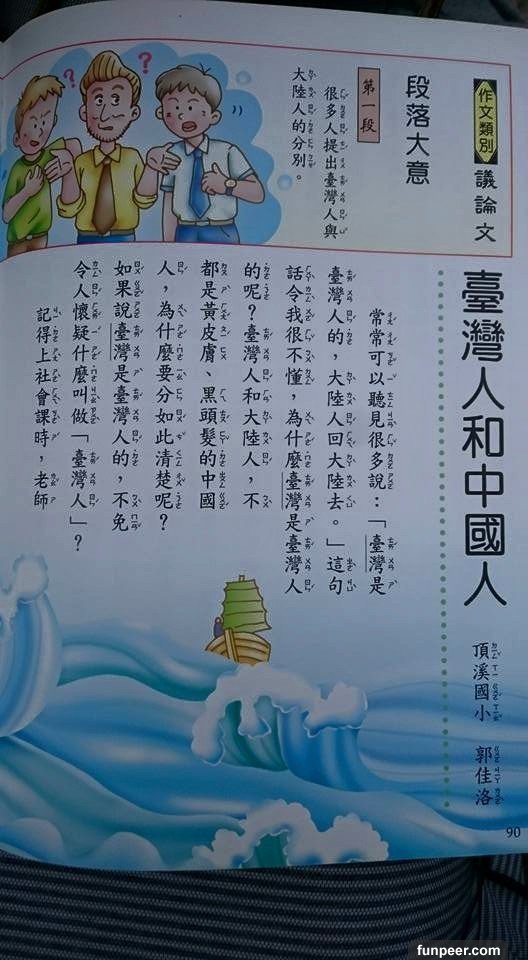 作文類別
議論文
段落大意
第一段
很多人提出臺灣人與
大陸人的分別。
臺灣人和中國人
頂溪國小 郭佳洛
常常可以聽見很多說：「臺灣是
臺灣人的，大陸人回大陸去。」這句
話令我很不懂，為什麼臺灣是臺灣人
的呢？臺灣人和大陸人，不
都是黃皮膚、黑頭髮的中國
人，為什麼要分如此清楚呢？
如果說臺灣是臺灣人的，不免
令人懷疑什麼叫做「臺灣人」？
記得上社會課時，老師
90
funpeer.com